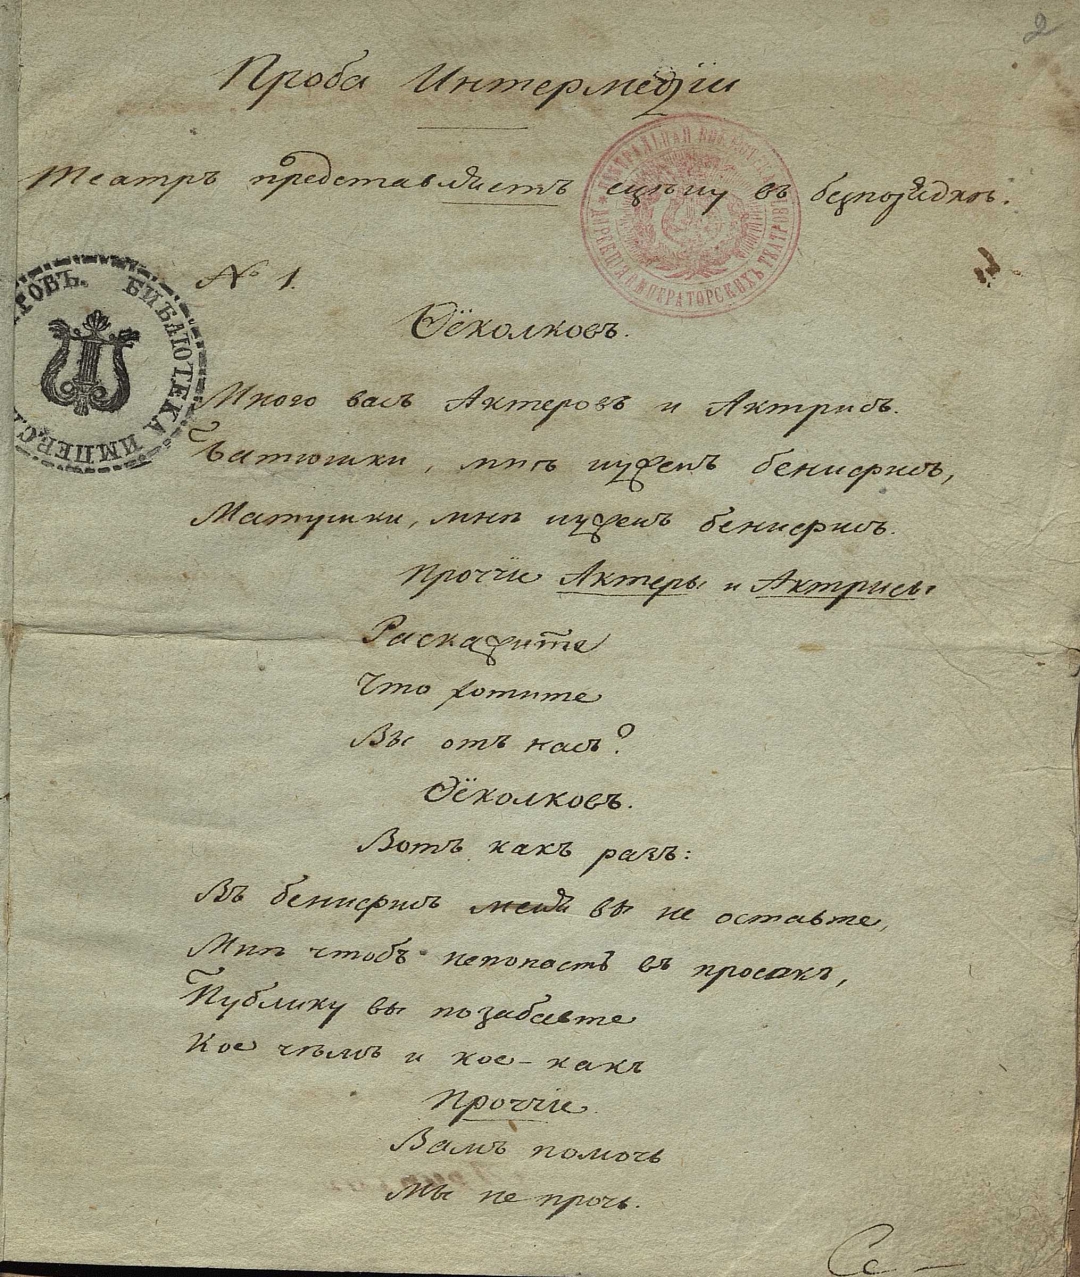 2
Проба Интермедіи
Театръ представляетъ сцѣну въ безпорядкѣ.
№ 1.
Ѳёколковъ.
Много васъ Актеровъ и Актрисъ.
Батюшки, мнѣ нуженъ бенифисъ,
Матушки, мнѣ нуженъ бенифисъ.
Проччіе Актеры и Актрисы
Раскажите
Что хотите
Вы отъ насъ?
Ѳёколковъ.
Вотъ какъ разъ:
Въ бенифисъ меня вы не оставте,
Мнѣ чтобъ непопасть въ просакъ,
Публику вы позабавте
Кое чѣмъ и кое-какъ
Проччіе.
Вамъ помочь
Мы не прочь.
Се-
ЦЕНТРАЛЬНАЯ БИБЛІОТЕКА ДИРЕКЦІЯ ИМПЕРАТОРСКИХЪ ТЕАТРОВЪ
БИБЛІОТЕКА ИМПЕР.С. ТРОВЪ.